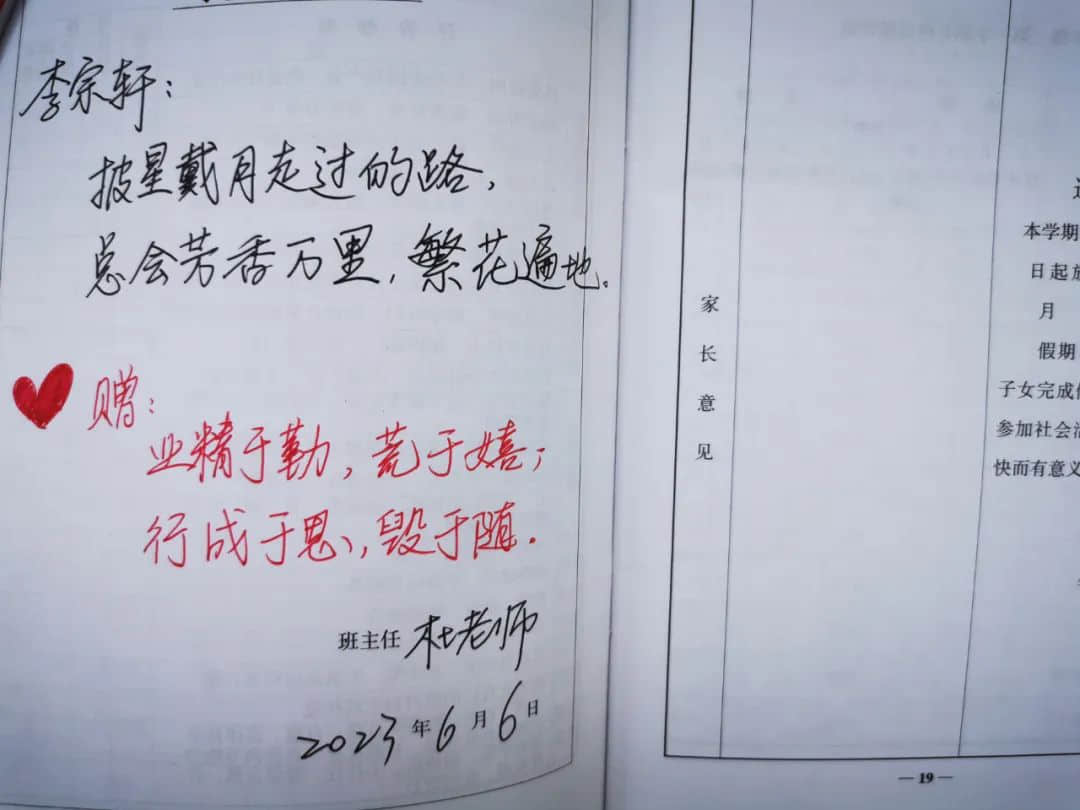 李宗轩：
披星戴月走过的路，
总会芳香万里，繁花遍地。
赠：
业精于勤，荒于嬉；
行成于思，毁于随．
班主任 杜老师
2023年6月6日
家
长
意
见
本学期
日起放
月
假期
子女完成
参加社会活
快而有意义
—19—